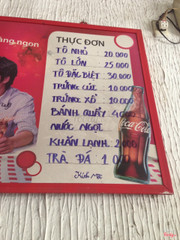 àng,ngon
THỰC ĐƠN
TÔ NHỎ 20.000
TÔ LỚN 25.000
TÔ ĐẶC BIỆT 30.000
TRỨNG CÚT 10.000
TRỨNG XÔ 10.000
BÁNH QUẨY 4.000
NƯỚC NGỌT
KHĂN LẠNH 2.000
TRÀ ĐÁ 1.000
Coca-Cola